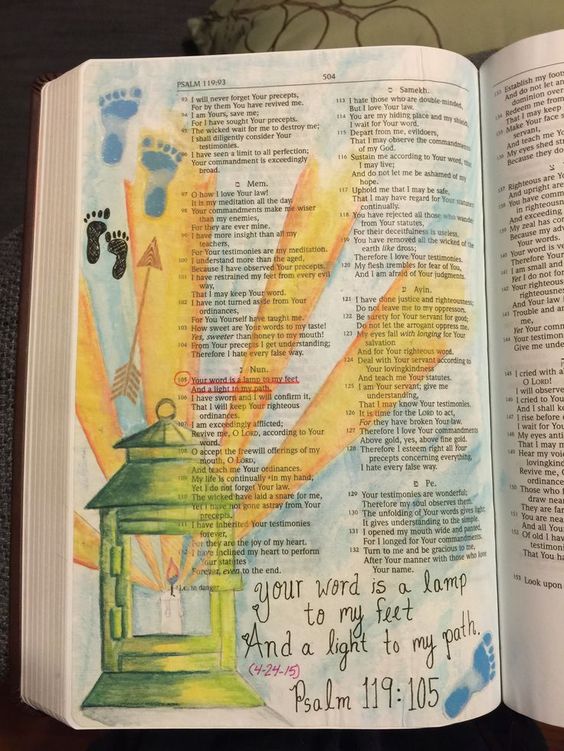 PSALM 119:93
504
93 I will never forget Your precepts,
For by them You have revived me.
94 I am Yours, save me;
For I have sought Your precepts.
95 The wicked wait for me to destroy me;
I shall diligently consider Your
testimonies.
96 I have seen a limit to all perfection;
Your commandment is exceedingly
broad.
מ Mem.
97 O how I love Your law!
It is my meditation all the day.
98 Your commandments make me wiser
than my enemies,
For they are ever mine.
99 I have more insight than all my
teachers,
For Your testimonies are my meditation.
100 I understand more than the aged,
Because I have observed Your precepts.
101 I have restrained my feet from every evil
way,
That I may keep Your word.
102 I have not turned aside from Your
ordinances,
For You Yourself have taught me.
103 How sweet are Your words to my taste!
Yes, sweeter than honey to my mouth!
104 From Your precepts I get understanding;
Therefore I hate every false way.
נ Nun.
105 Your word is a lamp to my feet
And a light to my path.
106 I have sworn and I will confirm it,
That I will keep Your righteous
ordinances.
107 I am exceedingly afflicted;
Revive me, O LORD, according to Your
word.
108 O accept the freewill offerings of my
mouth, O LORD,
And teach me Your ordinances.
109 My life is continually in my hand,
Yet I do not forget Your law.
110 The wicked have laid a snare for me,
Yet I have not gone astray from Your
precepts.
111 I have inherited Your testimonies
forever,
For they are the joy of my heart.
112 I have inclined my heart to perform
Your statutes
Forever, even to the end.
i.e. in danger
ס Samekh.
113 I hate those who are double-minded,
But I love Your law.
114 You are my hiding place and my shield;
I wait for Your word.
115 Depart from me, evildoers,
That I may observe the commandments
of my God.
116 Sustain me according to Your word, that
I may live;
And do not let me be ashamed of my
hope.
117 Uphold me that I may be safe,
That I may have regard for Your statutes
continually.
118 You have rejected all those who wander
from Your statutes,
For their deceitfulness is useless.
119 You have removed all the wicked of the
earth like dross;
Therefore I love Your testimonies.
120 My flesh trembles for fear of You,
And I am afraid of Your judgments.
ע Ayin.
121 I have done justice and righteousness;
Do not leave me to my oppressors.
122 Be surety for Your servant for good;
Do not let the arrogant oppress me.
123 My eyes fail with longing for Your
salvation
And for Your righteous word.
124 Deal with Your servant according to
Your lovingkindness
And teach me Your statutes.
125 I am Your servant; give me
understanding,
That I may know Your testimonies.
126 It is time for the LORD to act,
For they have broken Your law.
127 Therefore I love Your commandments
Above gold, yes, above fine gold.
128 Therefore I esteem right all Your
precepts concerning everything,
I hate every false way.
פ Pe.
129 Your testimonies are wonderful;
Therefore my soul observes them.
130 The unfolding of Your words gives light;
It gives understanding to the simple.
131 I opened my mouth wide and panted,
For I longed for Your commandments.
132 Turn to me and be gracious to me,
After Your manner with those who love
Your name.
your word is a lamp
to my feet
And a light to my path.
(4-24-15)
Psalm 119:105
Establish my foots
And do not let an
dominion over
134 Redeem me from
That I may keep
135 Make Your face s
servant,
And teach me Yo
136 My eyes shed str
Because they do
Righteous are Y
And upright are
138 You have comm
in righteousn
And exceeding
139 My zeal has con
Because my adv
Your words.
140 Your word is ve
Therefore Your
141 I am small and
Yet I do not for
142 Your righteousn
righteousness
And Your law i
143 Trouble and an
me,
Yet Your comm
144 Your testimoni
Give me under
145 I cried with a
O LORD!
I will observe
146 I cried to You
And I shall k
147 I rise before
I wait for You
148 My eyes anti
That I may m
149 Hear my voic
Revive me, O
ordinances
150 Those who f
draw near
They are far
151 You are nea
And all Your
152 Of old I hav
testimoni
That You ha
153 Look upon